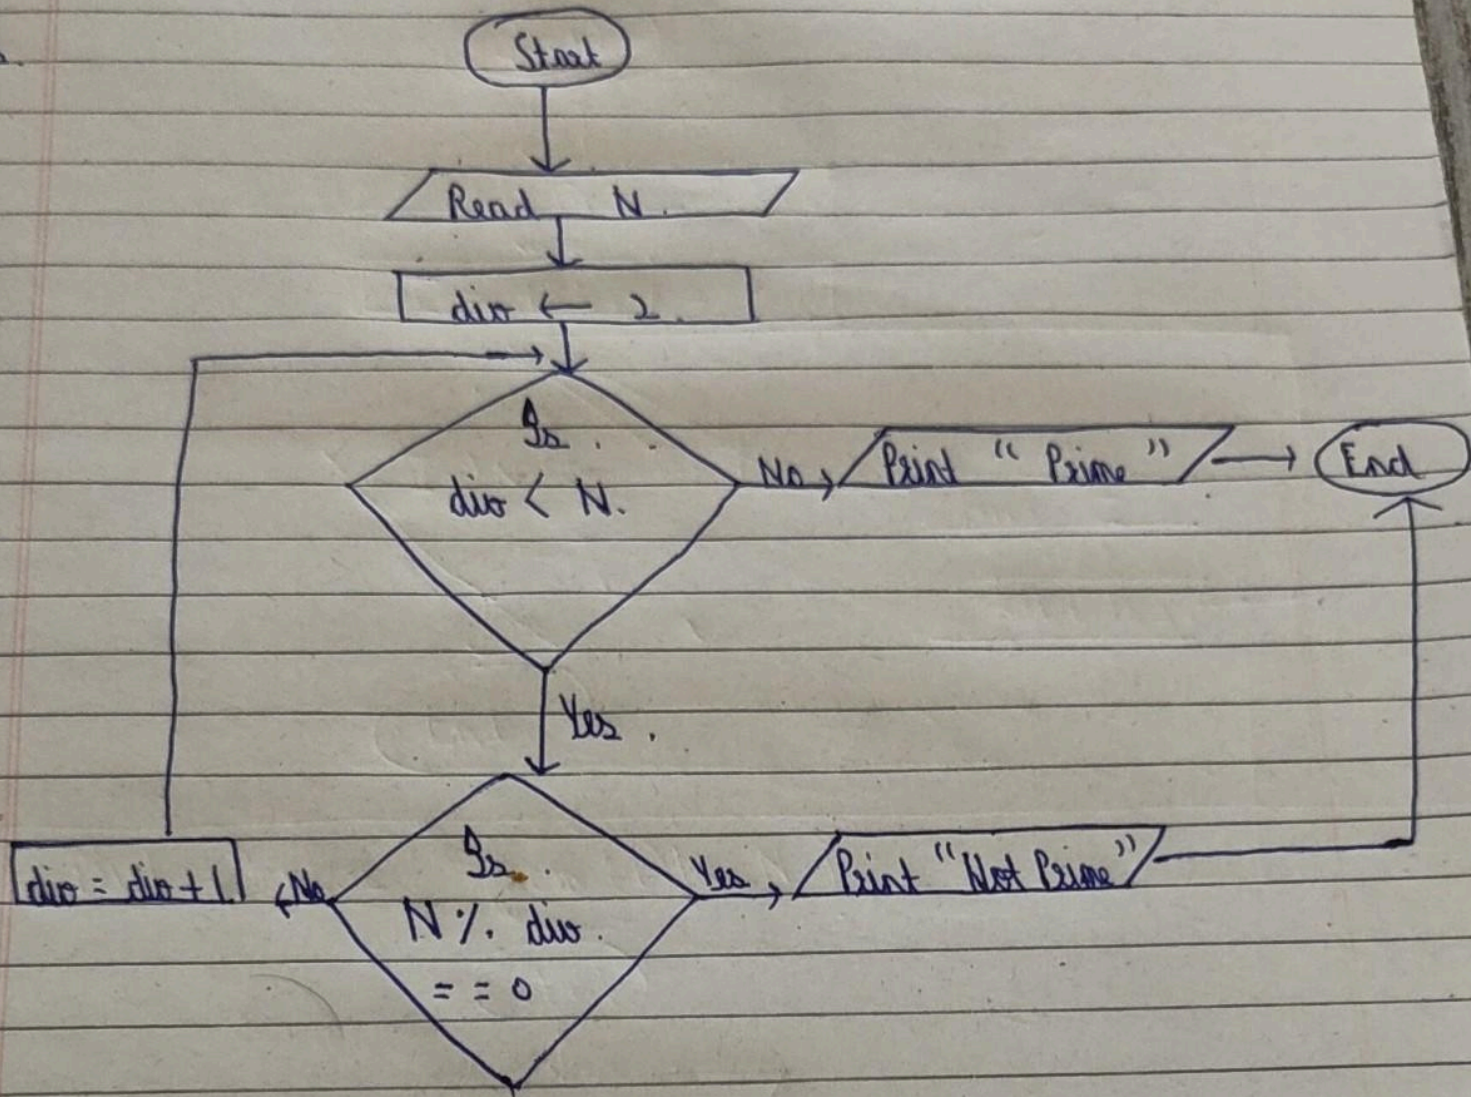 Start
Read N.
div ← 2.
Is
div < N.
No
Print “ Prime ”
End
Yes.
Is
N % div.
= = 0
Yes
Print “Not Prime”
No
div = div + 1.